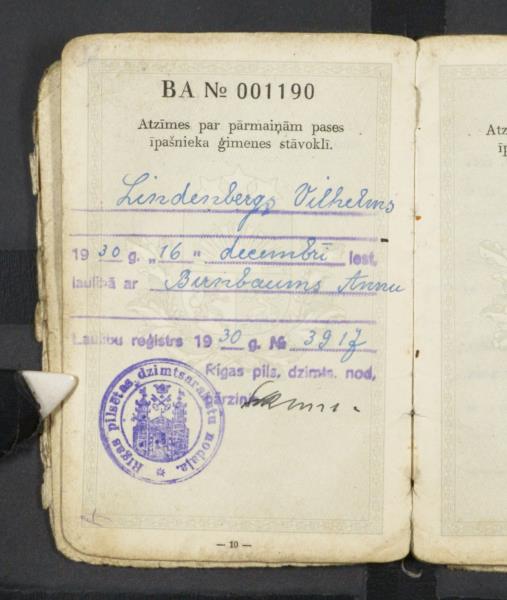 BA № 001190
Atzīmes par pārmaiņām pases
īpašnieka ģimenes stāvoklī.
Lindenbergs Vilhelms
1930 g. „16" decembrī iest.
laulībā ar Birnbaums Annu
Laulību reģistrs 1930 g. № 3917
Rīgas pils. dzimts. nod.
pārzinis
Rīgas pilsētas dzimtsarakstu nodaļa.
— 10 —
Atz
īp